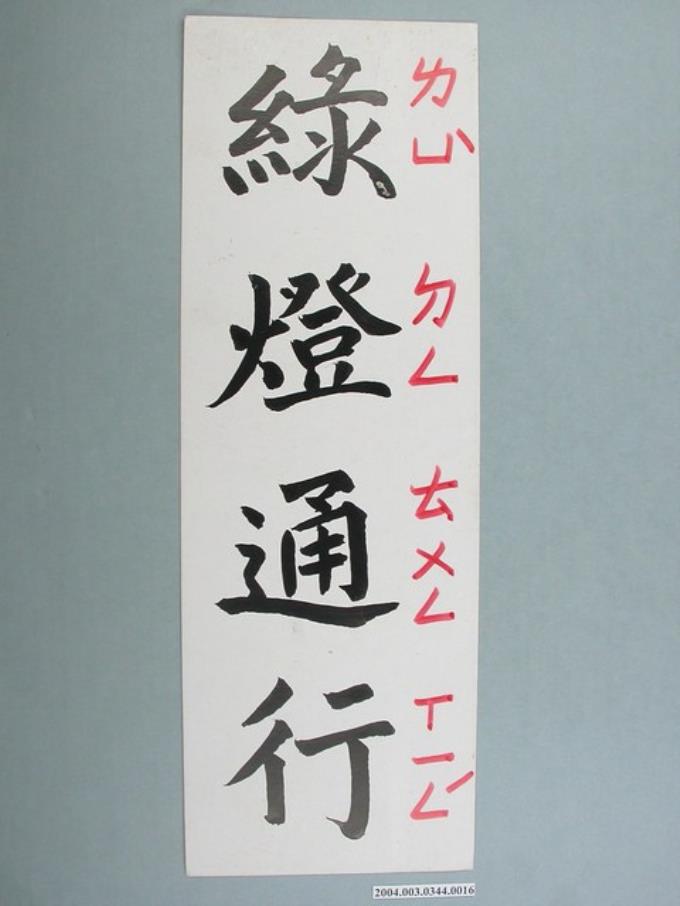 綠燈通行
ㄌㄩˋ
ㄉㄥ
ㄊㄨㄥ
ㄒㄧㄥˊ
2004.003.0344.0016